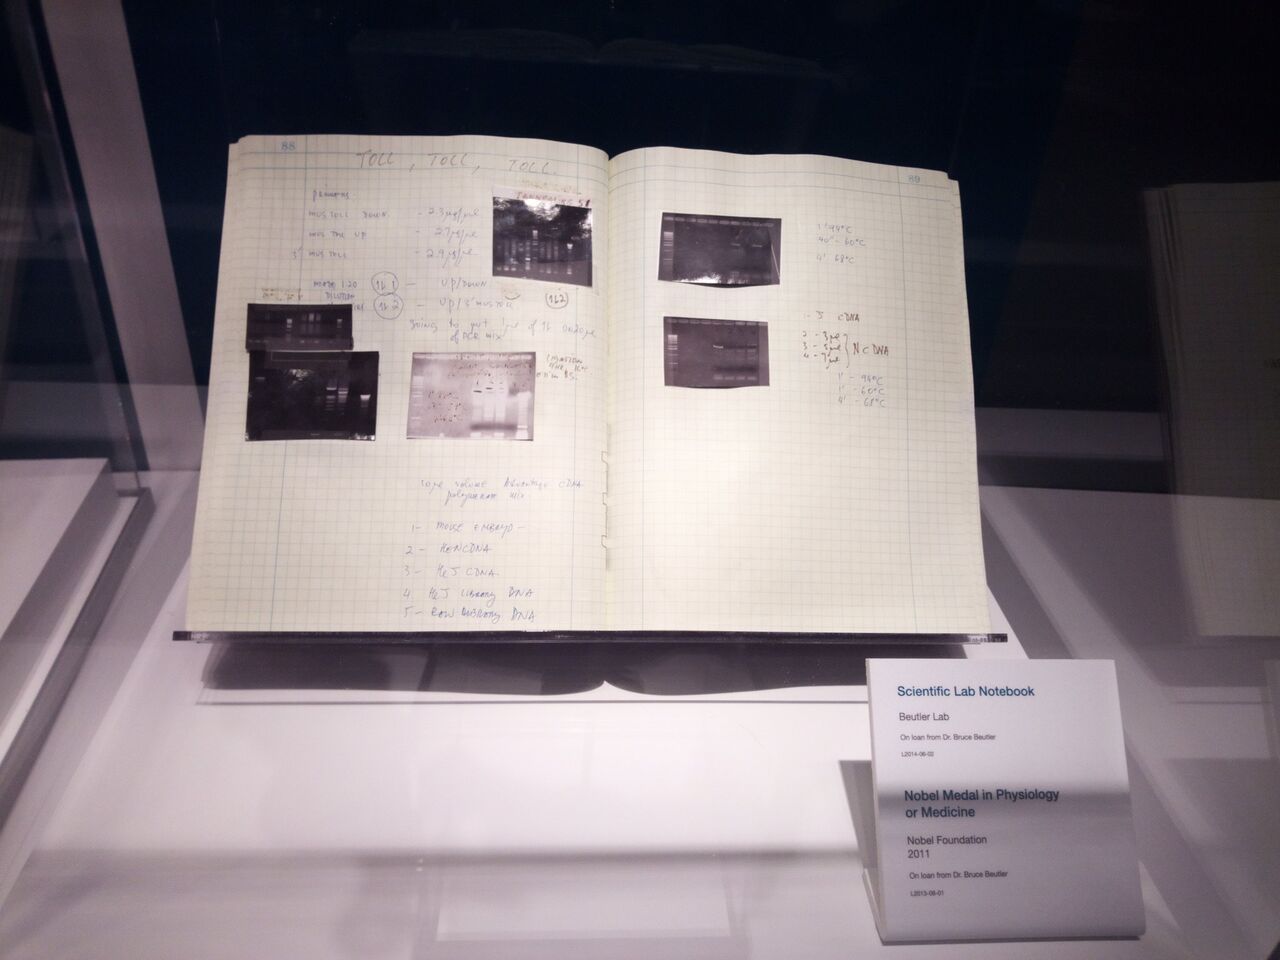 88
TOLL, TOLL, TOLL.
MUS TOLL DOWN - 2.3 µg/µl
MUS TOLL UP - 2.7 µg/µl
3' MUS TOLL - 2.9 µg/µl
made 1:20 - UP/DOWN
DILUTION
- UP/3' MUS TOLL
going to put 1µl of
of PCR mix
volume Advantage cDNA
polymerase mix.
1- MOUSE EMBRYO -
2 - HeN CDNA
3 - HeJ CDNA
4. HeJ LIBRARY DNA
5 - RAW LIBRARY DNA
89
1' 94°C
40" - 60°C
4' 68°C
1 - J cDNA
2 - 3µl
3 - 5µl N cDNA
4 - 7µl
1' - 94°C
1' - 60°C
4' - 68°C
Scientific Lab Notebook
Beutler Lab
On loan from Dr. Bruce Beutler
L2014-06-02
Nobel Medal in Physiology
or Medicine
Nobel Foundation
2011
On loan from Dr. Bruce Beutler
L2013-08-01